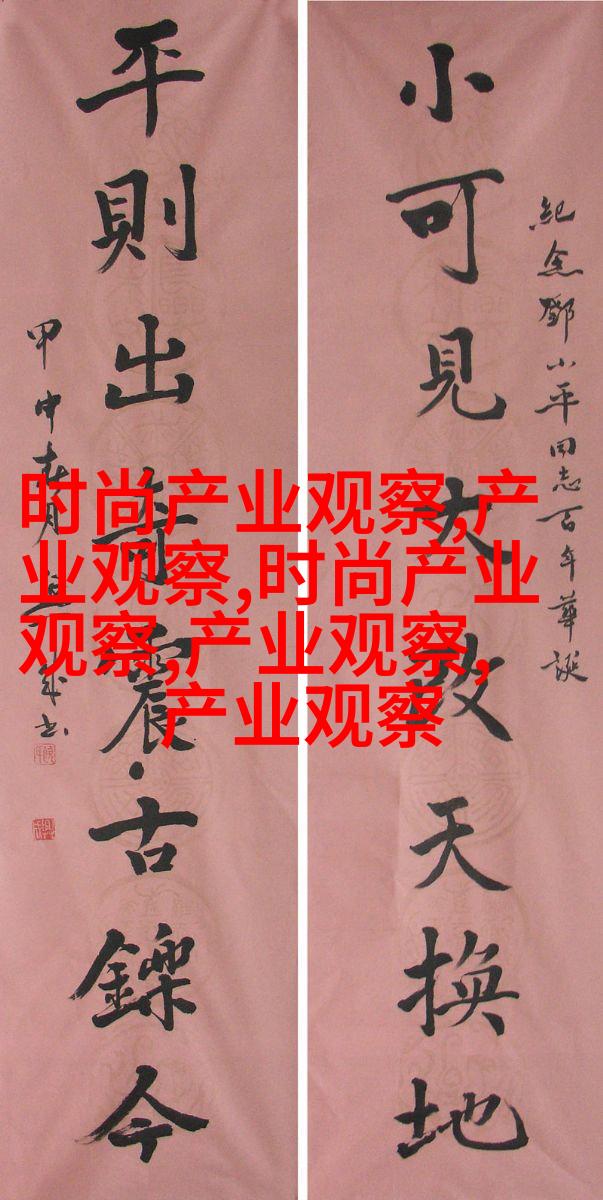 紀念鄧小平同志百年華誕
小可見大改天換地
平則出奇震古鑠今
甲申春月 书
时尚产业观察,产
业观察,时尚产业
观察,产业观察,
产业观察